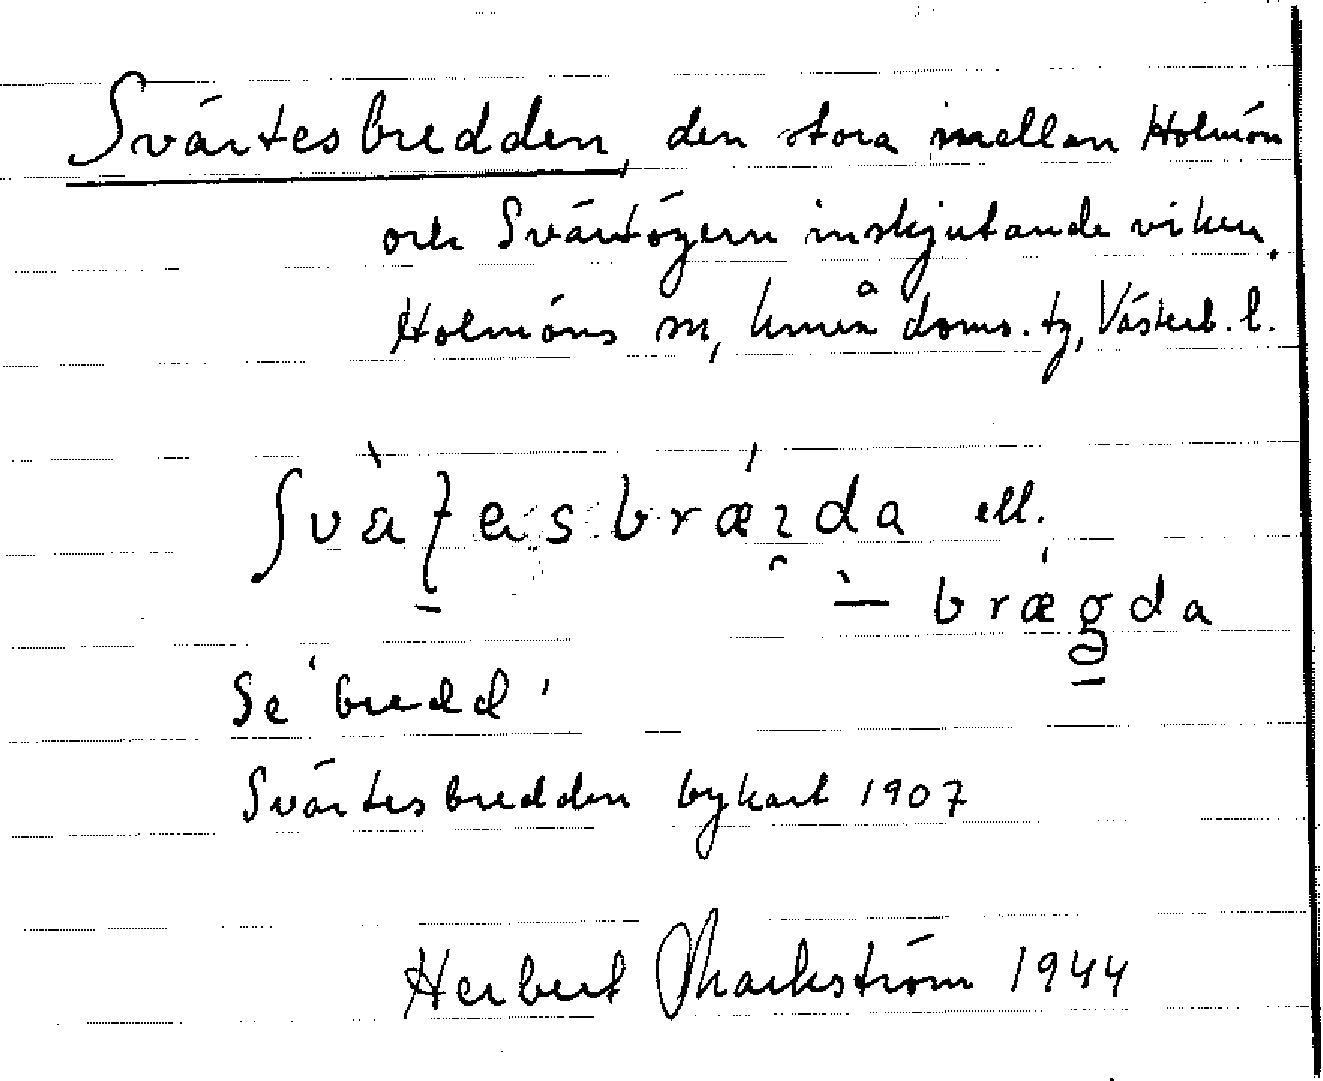 Svärtesbredden, den stora mellan Holmön
och Svärtögern inskjutande viken.
Holmöns sn, Umeå doms. tg, Västerb. l.
ell.
Se 'bredd'
Svärtesbredden bykart 1907
Herbert Markström 1944